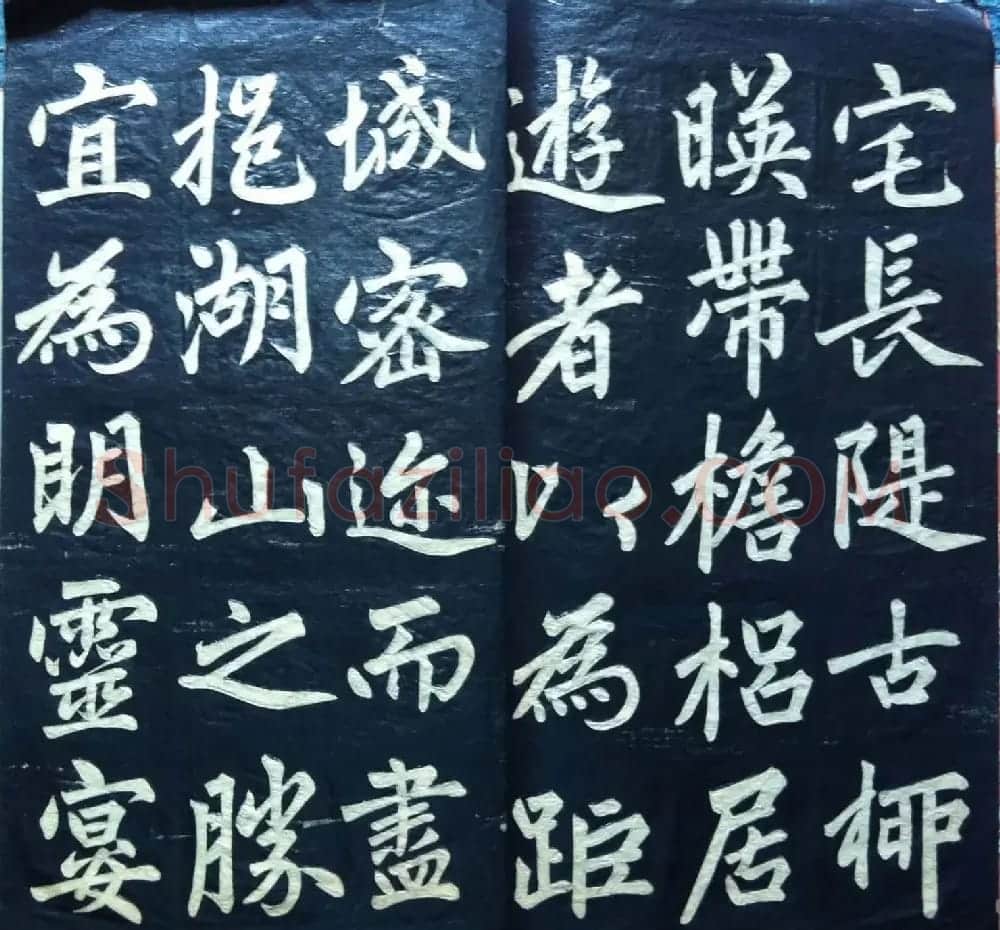 宅長隄古柳
暎帶檐梠居
遊者以為距
城密迩而盡
挹湖山之勝
宜為明靈宴
Shufaziliao.COM